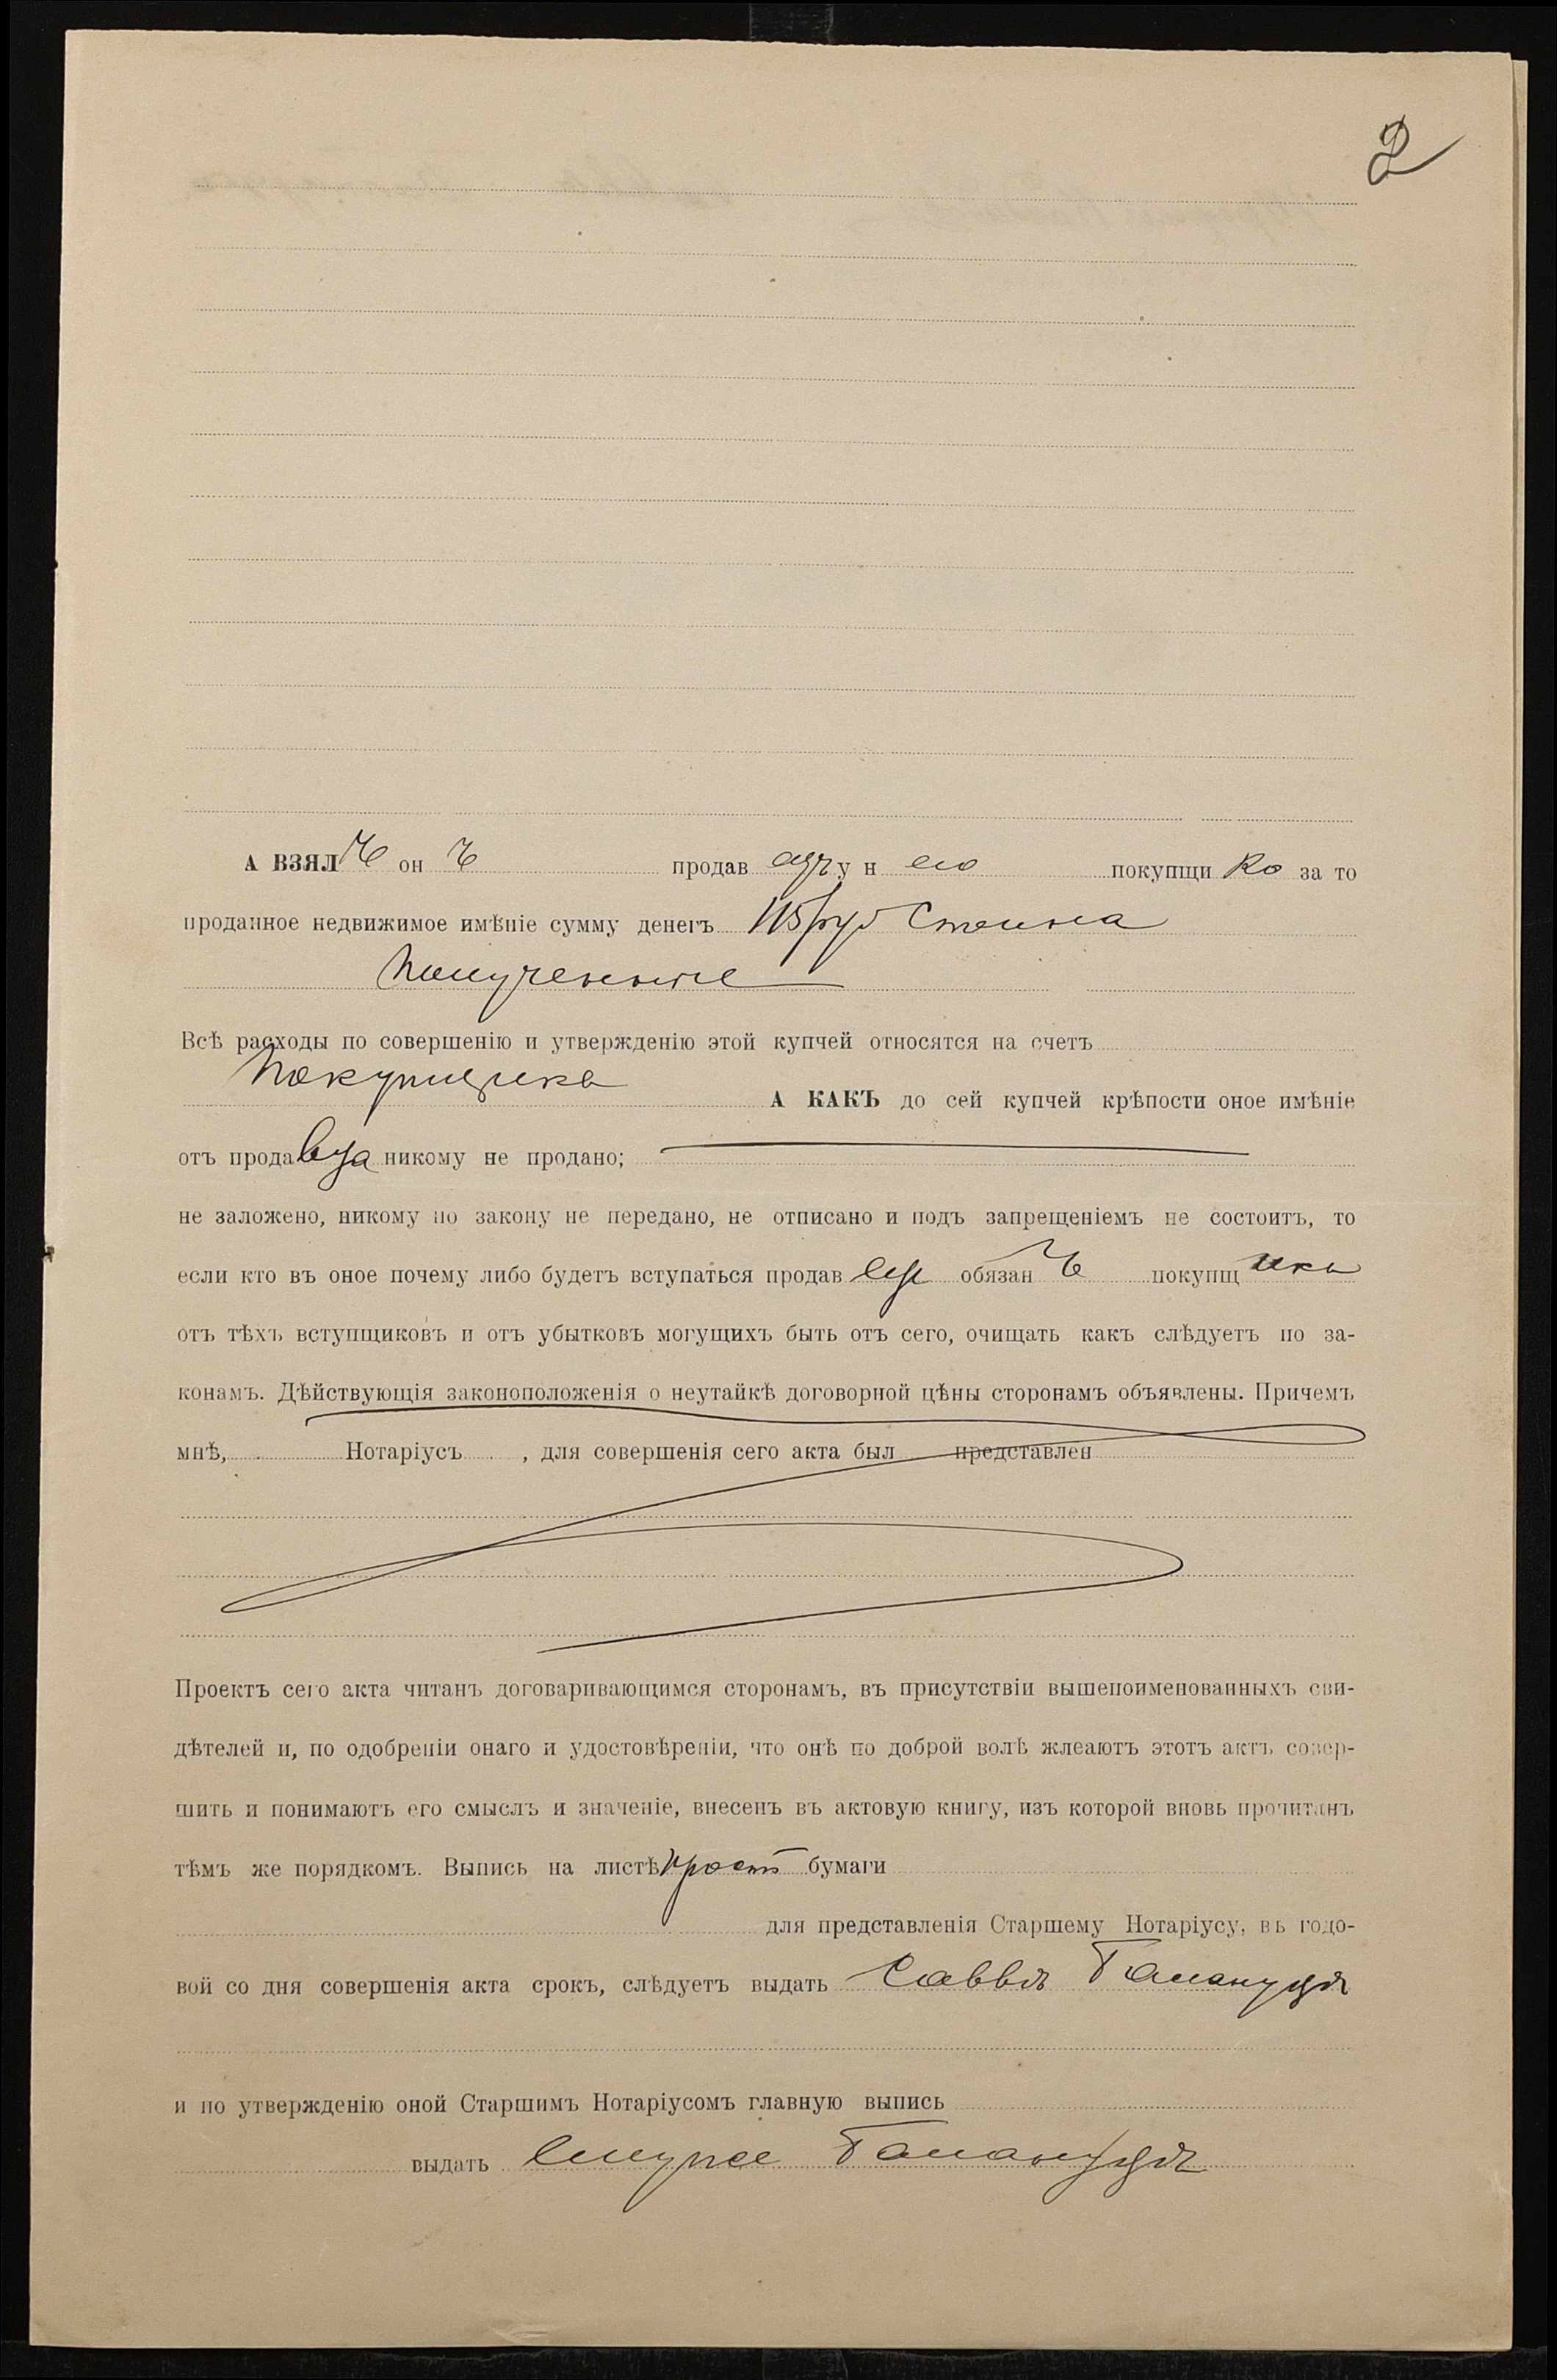 2
А ВЗЯЛЪ он ъ продав ецъ у н его покупщи ка за то
проданное недвижимое имѣніе сумму денегъ 115 руб сполна
полученные
Всѣ расходы по совершенію и утвержденію этой купчей относятся на счетъ
покупщика А КАКЪ до сей купчей крѣпости оное имѣніе
отъ продавца никому не продано;
не заложено, никому по закону не передано, не отписано и подъ запрещеніемъ не состоитъ, то
если кто въ оное почему либо будетъ вступаться продав ецъ обязан ъ покупщ ика
отъ тѣхъ вступщиковъ и отъ убытковъ могущихъ быть отъ сего, очищать какъ слѣдуетъ по за-
конамъ. Дѣйствующія законоположенія о неутайкѣ договорной цѣны сторонамъ объявлены. Причемъ
мнѣ, Нотаріусъ , для совершенія сего акта был представлен
Проектъ сего акта читанъ договаривающимся сторонамъ, въ присутствіи вышепоименованныхъ сви-
дѣтелей и, по одобреніи онаго и удостовѣреніи, что онѣ по доброй волѣ жлеаютъ этотъ актъ совер-
шить и понимаютъ его смыслъ и значеніе, внесенъ въ актовую книгу, изъ которой вновь прочитанъ
тѣмъ же порядкомъ. Выпись на листѣ прост бумаги
для представленія Старшему Нотаріусу, въ годо-
вой со дня совершенія акта срокъ, слѣдуетъ выдать Саввѣ
и по утвержденію оной Старшимъ Нотаріусомъ главную выпись
выдать